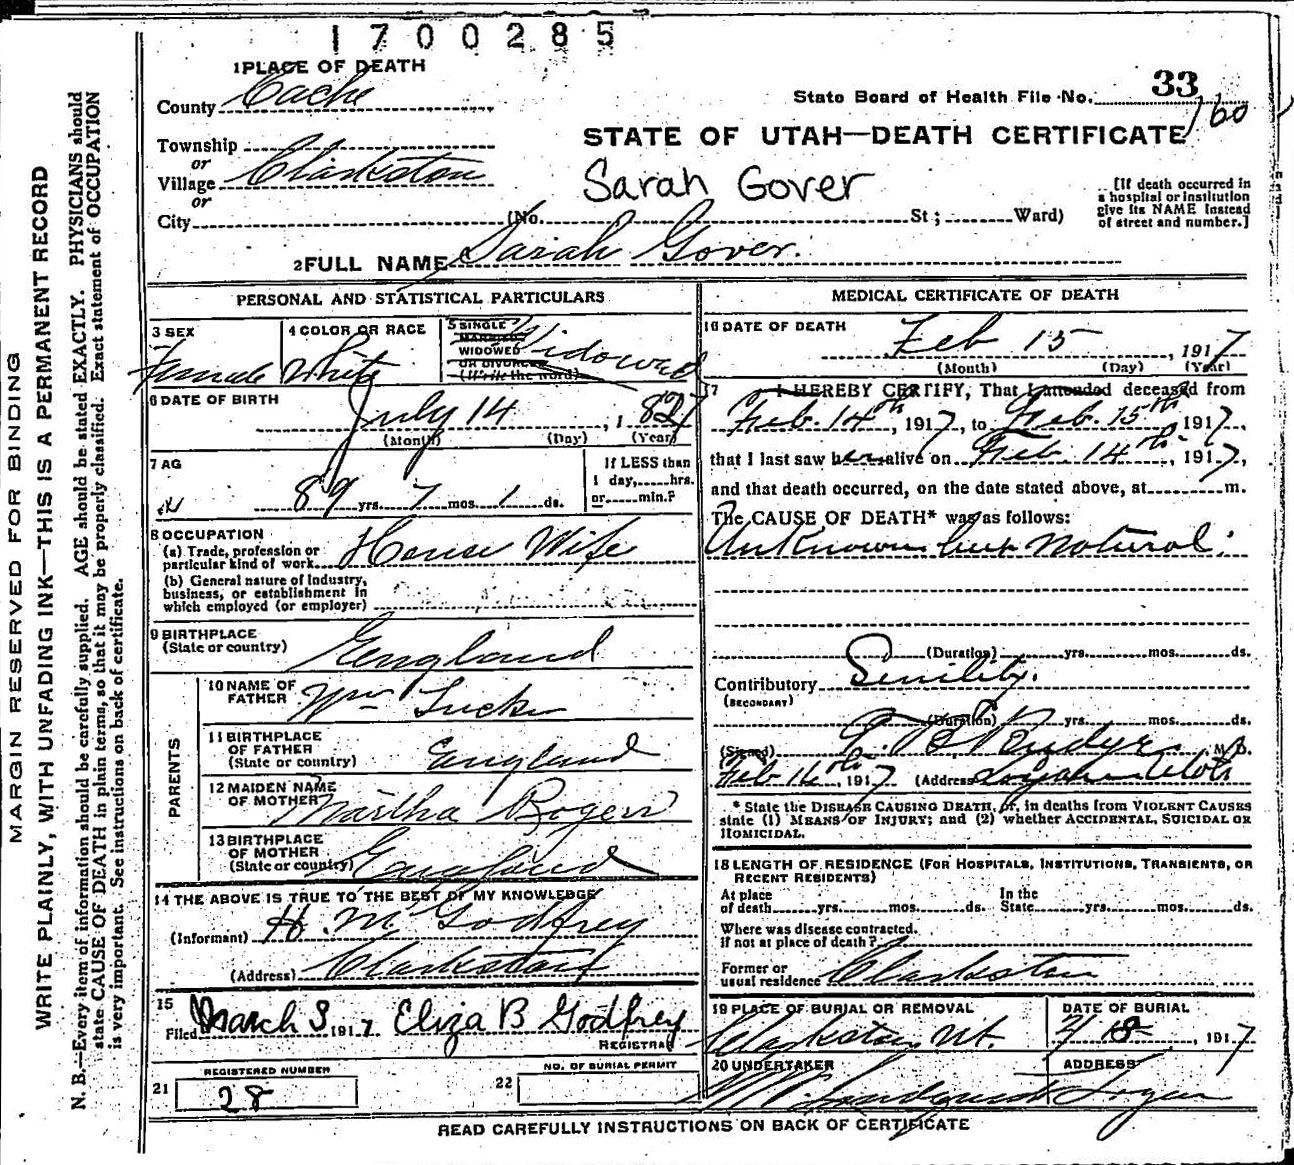 1700285
1 PLACE OF DEATH
County Cache
State Board of Health File No. 33
160
Township
or
Village Clarkston
or
City (No. St; Ward)
STATE OF UTAH—DEATH CERTIFICATE
Sarah Gover
[If death occurred in
a hospital or institution
give its NAME instead
of street and number.]
2 FULL NAME Sarah Gover.
PERSONAL AND STATISTICAL PARTICULARS
3 SEX
Female
4 COLOR OR RACE
White
5 SINGLE
MARRIED
WIDOWED
OR DIVORCED
(Write the word)
Widowed
6 DATE OF BIRTH
July 14, 1827
(Month) (Day) (Year)
7 AG
89 yrs. 7 mos. 1 ds.
If LESS than
1 day, hrs.
or min.?
8 OCCUPATION
(a) Trade, profession or
particular kind of work House Wife
(b) General nature of Industry,
business, or establishment in
which employed (or employer)
9 BIRTHPLACE
(State or country) England
PARENTS
10 NAME OF
FATHER Wm
11 BIRTHPLACE
OF FATHER
(State or country) England
12 MAIDEN NAME
OF MOTHER Martha
13 BIRTHPLACE
OF MOTHER
(State or country) England
14 THE ABOVE IS TRUE TO THE BEST OF MY KNOWLEDGE
(Informant) H. M. Godfrey
(Address) Clarkston
15
Filed March 3 1917. Eliza B Godfrey
REGISTRAR
21
REGISTERED NUMBER
28
22
NO. OF BURIAL PERMIT
MEDICAL CERTIFICATE OF DEATH
16 DATE OF DEATH
Feb 15, 1917
(Month) (Day) (Year)
17 I HEREBY CERTIFY, That I attended deceased from
Feb. 14th, 1917, to Feb. 15th, 1917.
that I last saw her alive on Feb. 14th, 1917,
and that death occurred, on the date stated above, at m.
The CAUSE OF DEATH* was as follows:
Unknown but Natural.
(Duration) yrs. mos. ds.
Contributory Senility.
(SECONDARY)
(Duration) yrs. mos. ds.
(Signed) M. D.
Feb 16th, 1917 (Address) Logan Utah
* State the DISEASE CAUSING DEATH, or, in deaths from VIOLENT CAUSES
state (1) MEANS OF INJURY; and (2) whether ACCIDENTAL, SUICIDAL OR
HOMICIDAL.
18 LENGTH OF RESIDENCE (FOR HOSPITALS, INSTITUTIONS, TRANSIENTS, OR
RECENT RESIDENTS)
At place
of death yrs. mos. ds.
In the
State yrs. mos. ds.
Where was disease contracted.
If not at place of death?
Former or
usual residence Clarkston
19 PLACE OF BURIAL OR REMOVAL
Clarkston, Ut.
DATE OF BURIAL
2/18, 1917
20 UNDERTAKER
ADDRESS
Logan
READ CAREFULLY INSTRUCTIONS ON BACK OF CERTIFICATE
MARGIN RESERVED FOR BINDING
WRITE PLAINLY, WITH UNFADING INK—THIS IS A PERMANENT RECORD
N. B.—Every item of information should be carefully supplied. AGE should be stated EXACTLY. PHYSICIANS should
state CAUSE OF DEATH in plain terms, so that it may be properly classified. Exact statement of OCCUPATION
is very important. See instructions on back of certificate.